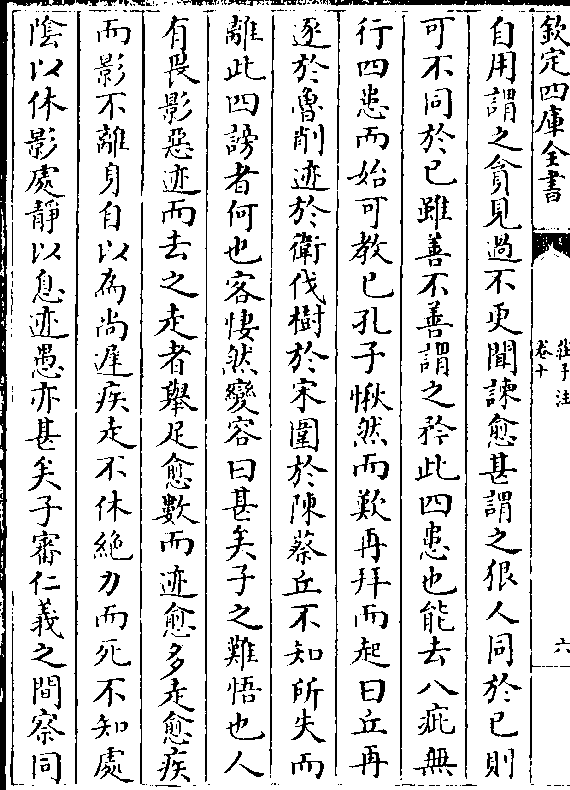 欽定四庫全書
莊子注
卷十
六
自用謂之貪見過不更聞諫愈甚謂之狠人同於已則
可不同於已雖善不善謂之矜此四患也能去八疵無
行四患而始可教已孔子愀然而歎再拜而起曰丘再
逐於魯削迹於衛伐樹於宋圍於陳蔡丘不知所失而
離此四謗者何也客悽然變容曰甚矣子之難悟也人
有畏影惡迹而去之走者舉足愈數而迹愈多走愈疾
而影不離身自以為尚遲疾走不休絶力而死不知處
陰以休影處靜以息迹愚亦甚矣子審仁義之間察同